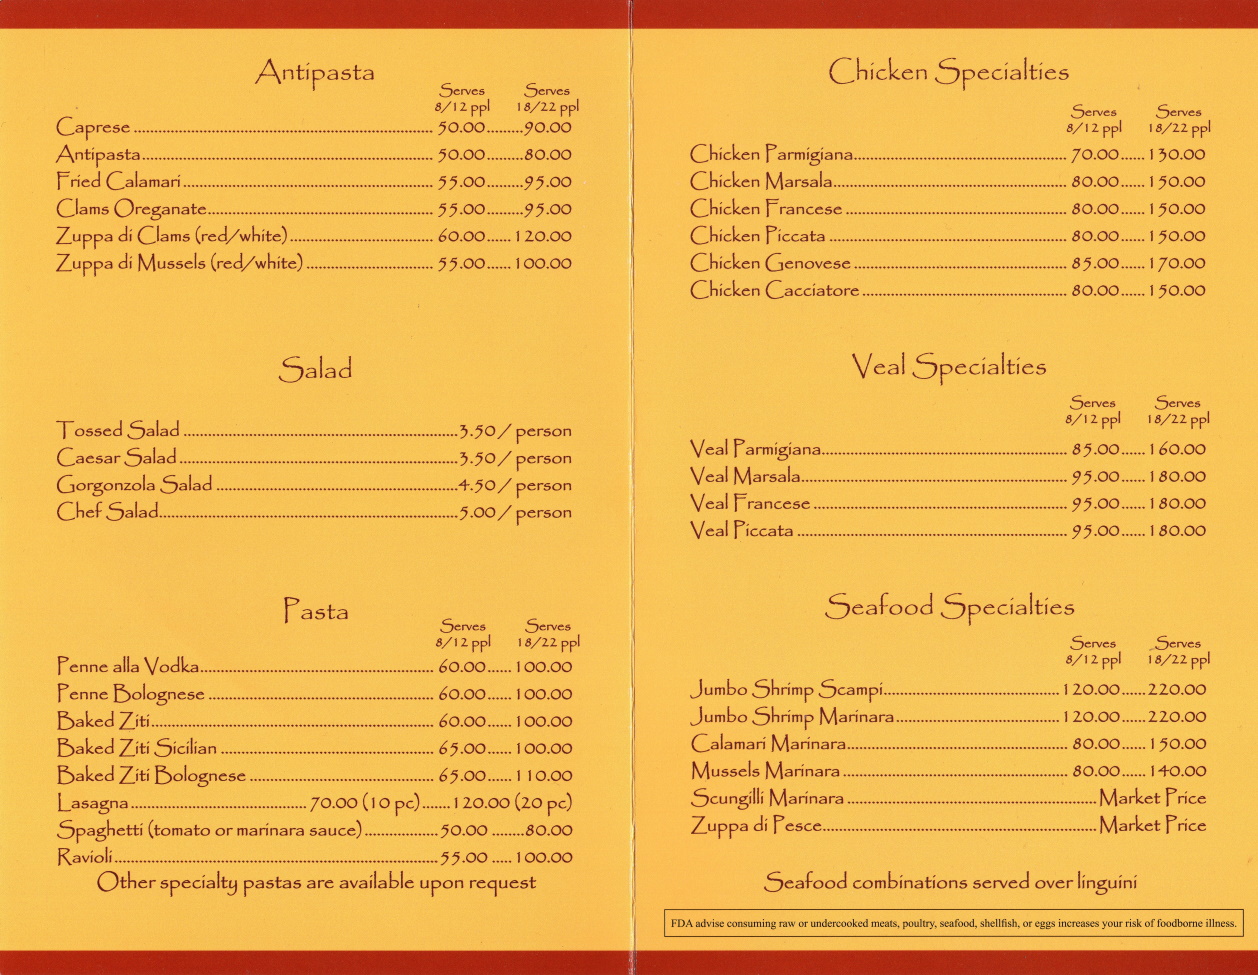 Antipasta
Serves Serves
8/12 ppl 18/22 ppl
Caprese 50.00 90.00
Antipasta 50.00 80.00
Fried Calamari 55.00 95.00
Clams Oreganate 55.00 95.00
Zuppa di Clams (red/white) 60.00 120.00
Zuppa di Mussels (red/white) 55.00 100.00
Salad
Tossed Salad 3.50 / person
Caesar Salad 3.50 / person
Gorgonzola Salad 4.50 / person
Chef Salad 5.00 / person
Pasta
Serves Serves
8/12 ppl 18/22 ppl
Penne alla Vodka 60.00 100.00
Penne Bolognese 60.00 100.00
Baked Ziti 60.00 100.00
Baked Ziti Sicilian 65.00 100.00
Baked Ziti Bolognese 65.00 110.00
Lasagna 70.00 (10 pc) 120.00 (20 pc)
Spaghetti (tomato or marinara sauce) 50.00 80.00
Ravioli 55.00 100.00
Other specialty pastas are available upon request
Chicken Specialties
Serves Serves
8/12 ppl 18/22 ppl
Chicken Parmigiana 70.00 130.00
Chicken Marsala 80.00 150.00
Chicken Francese 80.00 150.00
Chicken Piccata 80.00 150.00
Chicken Genovese 85.00 170.00
Chicken Cacciatore 80.00 150.00
Veal Specialties
Serves Serves
8/12 ppl 18/22 ppl
Veal Parmigiana 85.00 160.00
Veal Marsala 95.00 180.00
Veal Francese 95.00 180.00
Veal Piccata 95.00 180.00
Seafood Specialties
Serves Serves
8/12 ppl 18/22 ppl
Jumbo Shrimp Scampi 120.00 220.00
Jumbo Shrimp Marinara 120.00 220.00
Calamari Marinara 80.00 150.00
Mussels Marinara 80.00 140.00
Scungilli Marinara Market Price
Zuppa di Pesce Market Price
Seafood combinations served over linguini
FDA advise consuming raw or undercooked meats, poultry, seafood, shellfish, or eggs increases your risk of foodborne illness.